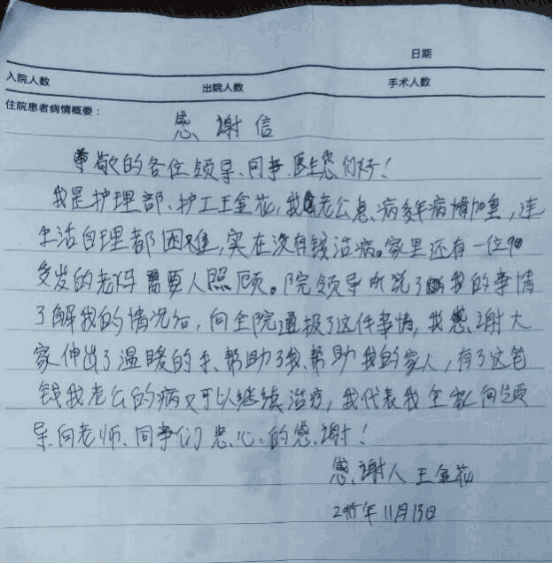 日期
入院人数 出院人数 手术人数
住院患者病情概要：
感谢信
尊敬的各位领导、同事、医生您们好！
我是护理部、护工王金花，我老公患病多年病情加重，连
生活自理都困难，实在没有钱治病。家里还有一位90
多岁的老妈需要人照顾。院领导听说了我的事情
了解我的情况后，向全院通报了这件事情，我感谢大
家伸出了温暖的手、帮助了我、帮助我的家人，有了这笔
钱我老公的病又可以继续治疗，我代表我全家向领
导、向老师、同事们忠心的感谢！
感谢人 王金花
年11月13日